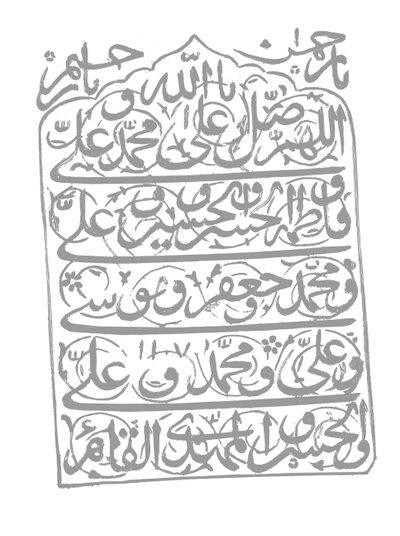 يا رحمن يا الله يا رحيم
اللهم صل على محمد و على
و فاطمة و الحسن و الحسين و على
و محمد و جعفر و موسى
و على و محمد و على
و الحسن و المهدى القائم